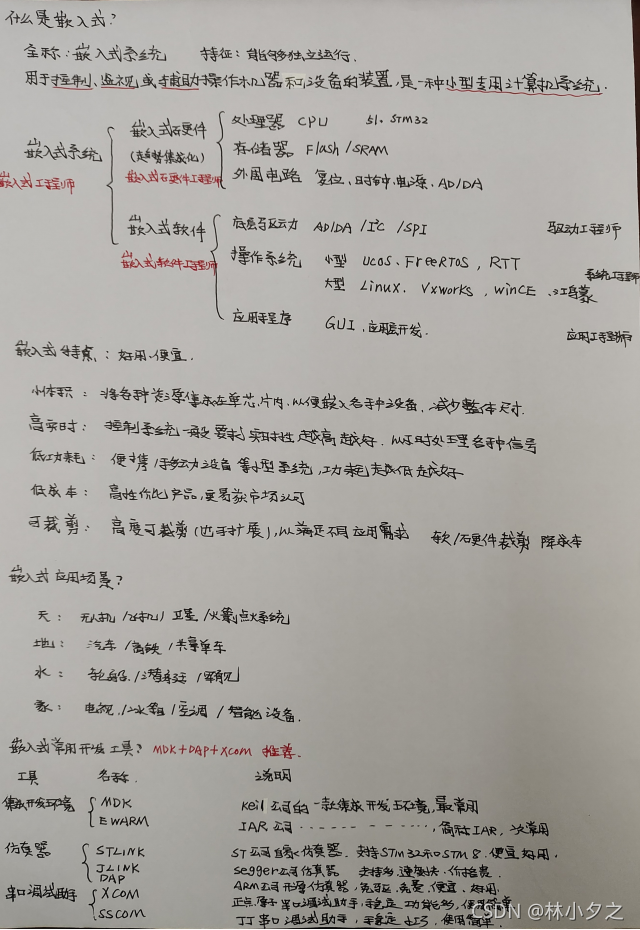 什么是嵌入式?
全称:嵌入式系统 特征:能够独立运行.
用于控制、监视或辅助操作机器和设备的装置,是一种小型专用计算机系统.
嵌入式系统
嵌入式工程师
嵌入式硬件
(趋势集成化)
嵌入式硬件工程师
处理器 CPU 51. STM32
存储器 Flash/SRAM
外围电路 复位、时钟、电源、AD/DA
嵌入式软件
嵌入式软件工程师
底层驱动 AD/DA /I²C /SPI 驱动工程师
操作系统 小型 UCOS、FreeRTOS, RTT 系统工程师
大型 LinuX. VxworKs, winCE、鸿蒙
应用程序 GUI, 应用层开发. 应用工程师
嵌入式特点:好用、便宜.
小体积:将各种资源集成在单芯片内,以便嵌入各种设备,减少整体尺寸.
高实时:控制系统一般要求实时性越高越好,以及时处理各种信号
低功耗:便携/移动设备等小型系统,功耗越低越好
低成本:高性价比产品,更易获市场认可
可裁剪:高度可裁剪(也可扩展),以满足不同应用需求 软/硬件裁剪 降成本
嵌入式应用场景?
天:无人机/飞机/卫星/火箭点火系统
地:汽车/高铁/共享单车
水:轮船/潜艇/军舰
家:电视/冰箱/空调/智能设备.
嵌入式常用开发工具? MDK+DAP+XCOM 推荐.
工具 名称. 说明
集成开发环境 MDK Keil公司的一款集成开发环境,最常用
EWARM IAR公司 - - - - - - - -,简称IAR,次常用
仿真器 STLINK ST公司自家仿真器.支持STM32和STM8.便宜,好用.
JLINK Segger公司仿真器 支持多、速度快、价格贵.
DAP ARM公司开源仿真器,免驱、免费、便宜、好用.
串口调试助手 XCOM 正点原子串口调试助手,稳定、功能多,使用简单
SSCOM 丁丁串口调试助手,稳定、小巧、使用简单.
CSDN @林小夕之